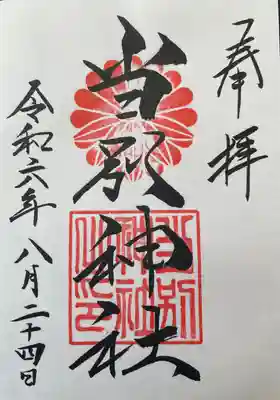 奉拝
当別神社
当別神社之印
令和六年八月二十四日